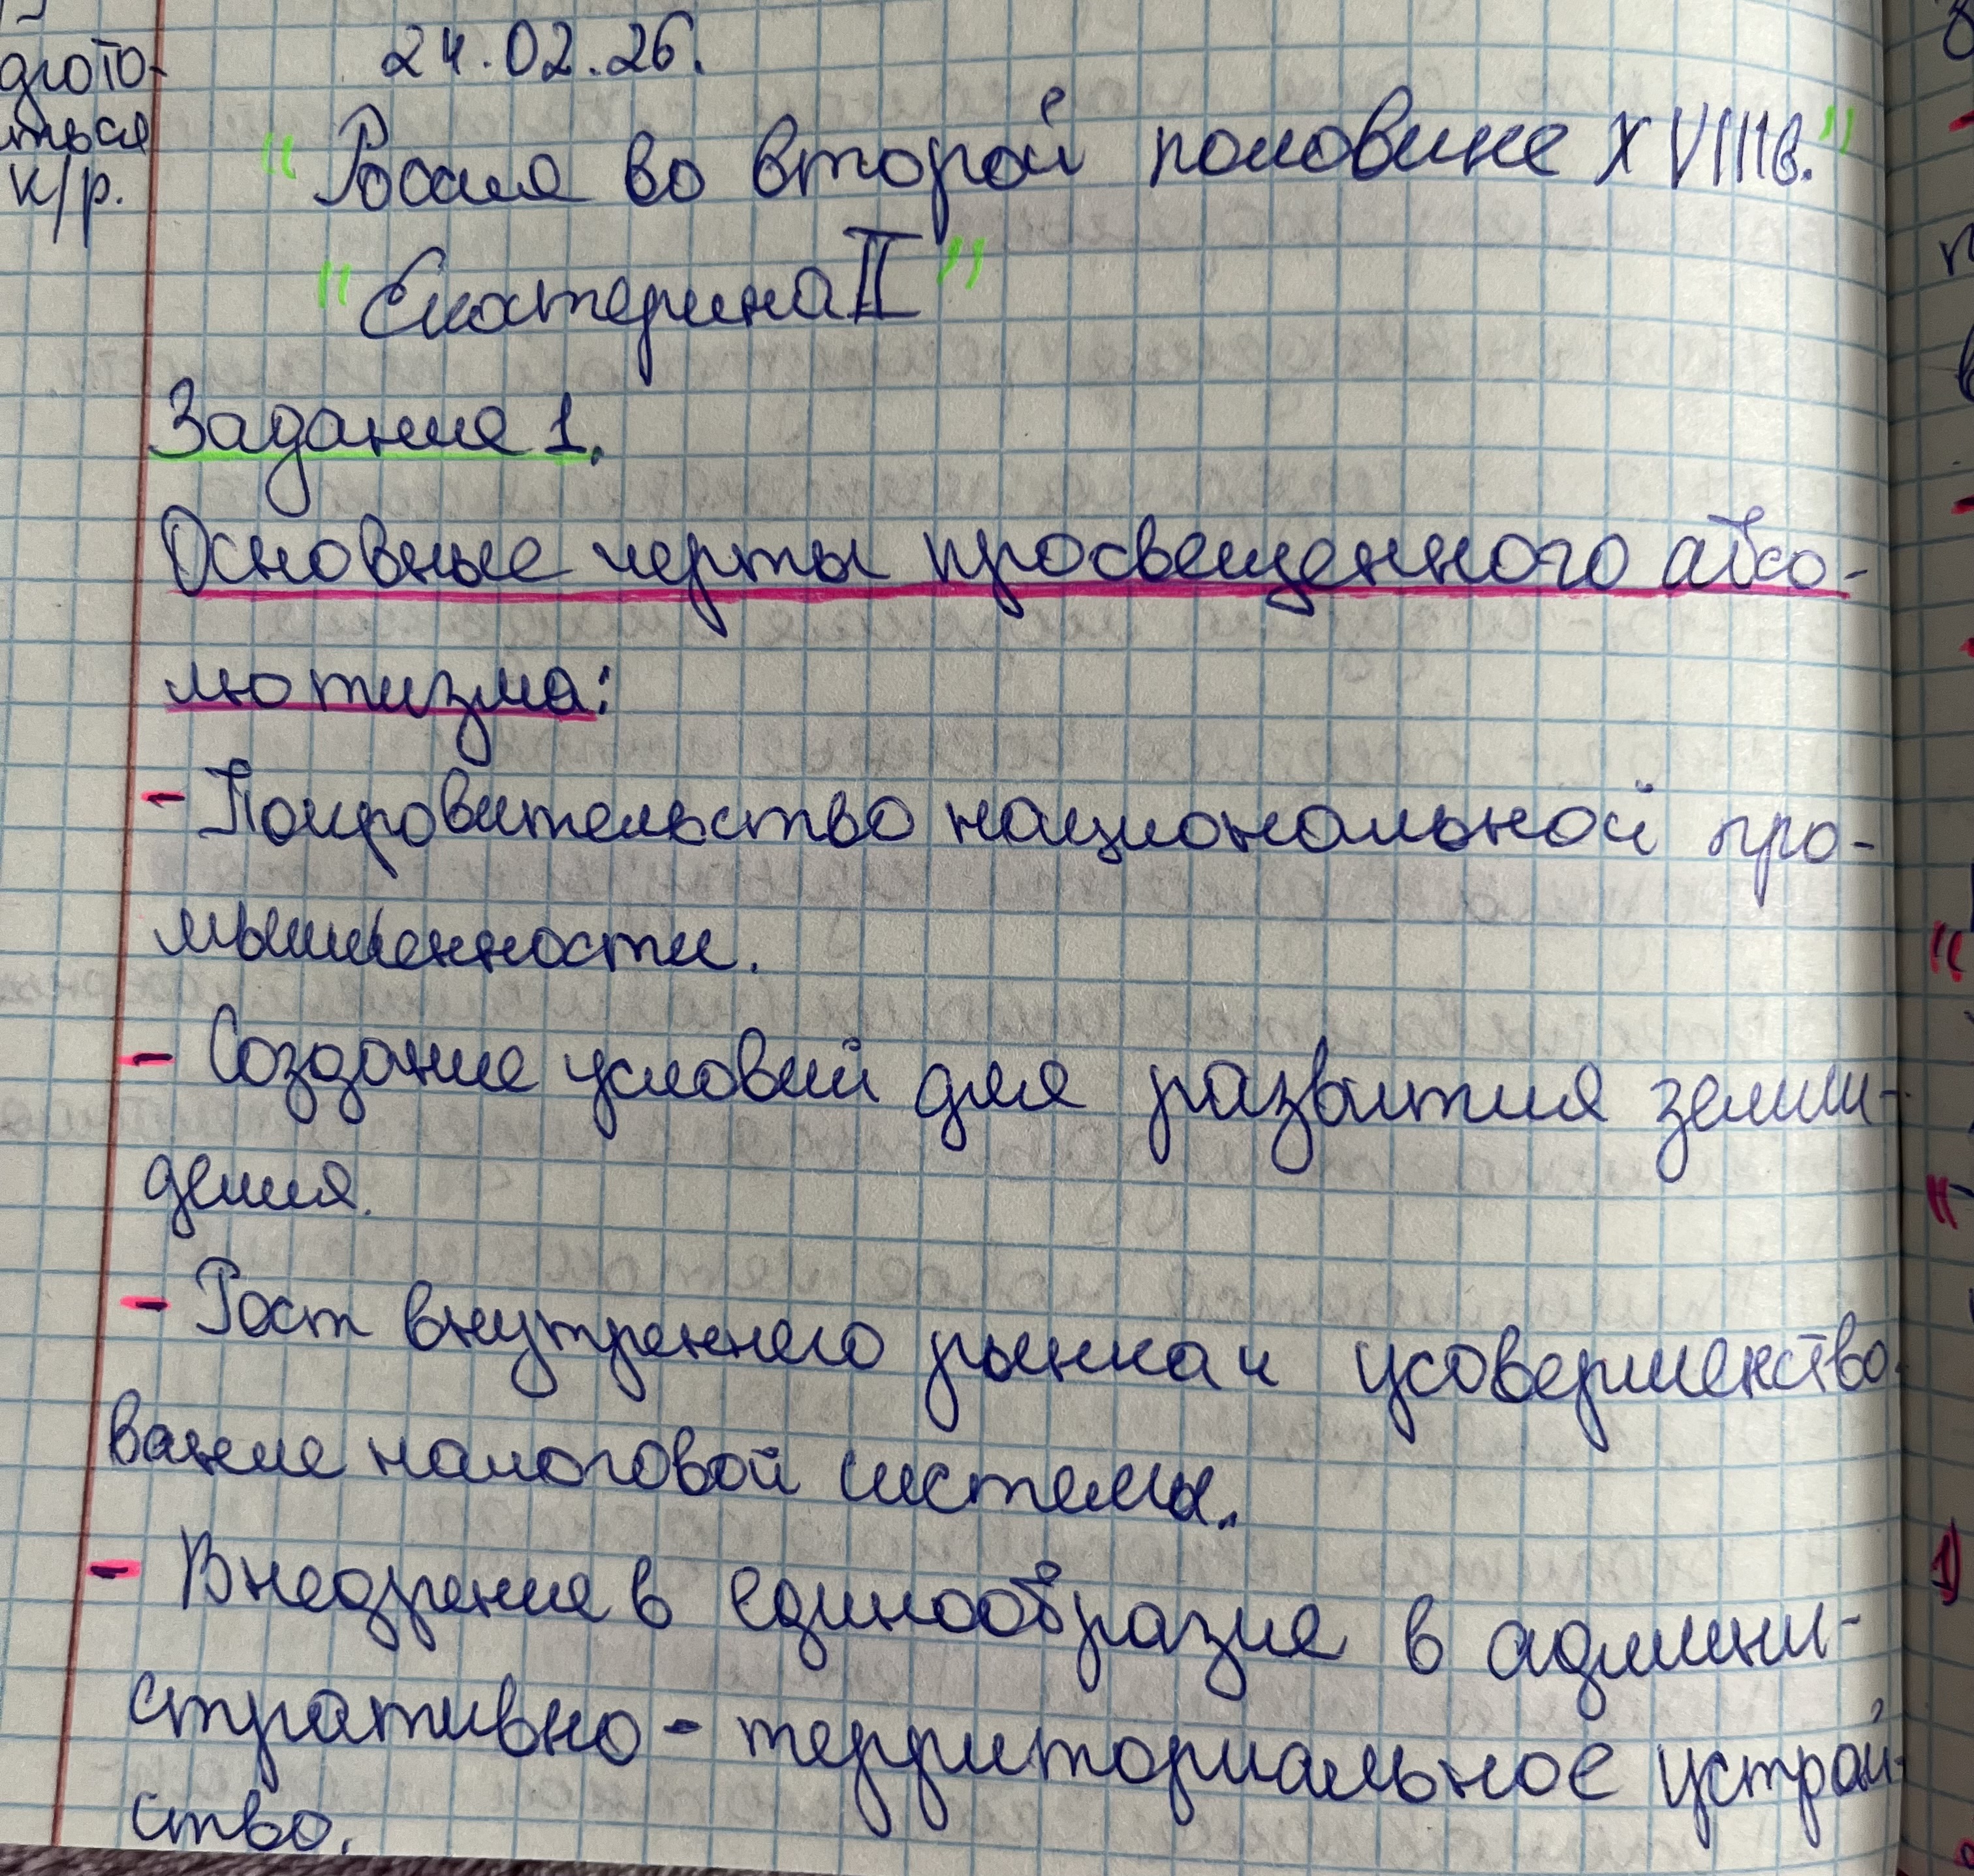 24.02.26.
к/р.
"Россия во второй половине XVIIIв."
"Екатерина II"
Задание 1.
Основные черты просвещенного абсо-
лютизма:
- Покровительство национальной про-
мышленности.
- Создание условий для развития земли-
делия.
- Рост внутреннего рынка и усовершенство-
вание налоговой системы.
- Внедрение в единообразие в админи-
стративно-территориальное устрой-
ство.